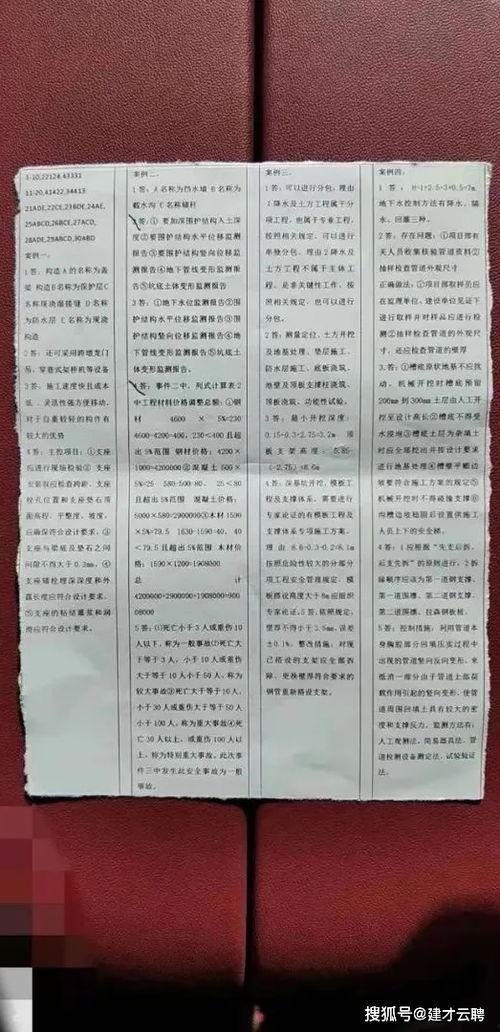 1-10,22124,43331
11-20,41422,34413
21ADE,22CE,23BDE,24AE,
25ABCD,26BCE,27ACD,
28ADE,29ABCD,30ABD
案例一：
1答：构造A的名称为盖
梁 构造B名称为保护层C
名称现浇湿接缝 D名称
为防水层 E名称为现浇
构造
2答：还可采用跨墩龙门
吊、穿巷式架桥机等设备
3答：施工速度快且成本
低、灵活性强方便移动，
对于自重较轻的构件有
较大的优势
4答：主控项目：①支座
应进行现场检验②支座
安装前应检查跨距、支座
栓孔位置和支座垫石顶
面高程、平整度、坡度，
应确保符合设计要求。③
支座与梁底及垫石之间
间隙不得大于0.2mm。④
支座锚栓埋深深度和外
露长度应符合设计要求。
⑤支座的粘结灌浆和润
滑应符合设计要求。
案例二：
1答：A名称为挡水墙 B名称为
截水沟 C名称锚杆
2答：①要加深围护结构入土深
度②要围护结构水平位移监测
报告③要围护结构竖向位移监
测报告④地下管线变形监测报
告⑤坑底土体变形监测报告
3答：①地下水位监测报告②围
护结构水平位移监测报告③围
护结构竖向位移监测报告④地
下管线变形监测报告⑤坑底土
体变形监测报告。
4答：事件二中，列式计算表2
中工程材料价格调整总额：①钢
材 4600 × 5%=230
4600-4200=400，230＜400且超
出5%范围 钢材价格：4200×
1000=4200000②混凝土500×
5%=25 580-500=80， 25＜80
且超出5%范围 混凝土价格：
5000×580=2900000③木材1590
×5%=79.5 1630-1590=40，40
＜79.5且超出5%范围 木材价
格：1590×1200=1908000
总 计
4200000+2900000+1908000=900
08000
5答：①死亡小于3人或重伤10
人以下，称为一般事故②死亡大
于等于3人，小于10人或重伤大
于等于10人小于50人，称为
较大事故③死亡大于等于10人，
小于30人或重伤大于等于50人
小于100人，称为重大事故④死
亡30人以上，或重伤100人以
上，称为特别重大事故。此次事
件三中发生此安全事故为一般
事故。
案例三：
1答：可以进行分包；理由
1降水及土方工程属于分
项工程，也属于专业工程，
按照相关规定，可以进行
单独分包。理由2降水及
土方工程不属于主体工
程，是非关键工作，按照
相关规定，也可以进行分
包。
2答：测量定位、土方开挖
及地基处理、垫层施工、
防水层施工、底板浇筑、
地壁及顶板支撑柱浇筑、
顶板浇筑、功能性试验。
3答：最小开挖深度：
0.15+0.3+2.75=3.2m 顶
板支架高度：5.85
（-2.75）=8.6m
4答：深基坑开挖，模板工
程及支撑体系，需要进行
专家论证的有模板工程及
支撑体系专项施工方案，
理由8.6-0.3-0.2=8.1m
按照危险性较大的分部分
项工程安全管理规定，模
板搭设高度大于8m应组织
专家论证。5答：依照规定，
壁厚不得小于3.5mm，误差
±0.1%。整改措施：对现
已搭设的支架应全部拆
除，更换壁厚符合要求的
钢管重新搭设支架。
案例四：
1答：H=1+2.5+3+0.5=7m，
地下水控制方法有降水、隔
水、回灌三种。
2答：存在问题：①项目部有
关人员收集核验管道资料②
抽样检查管道外观尺寸
正确做法：①项目部取样员应
在监理单位、建设单位见证下
进行取样并对样品应进行检
测②抽样检查管道的外观尺
寸，还应检查管道的壁厚
3答：①槽底原状地基不应扰
动，机械开挖时槽底预留
200mm到300mm土层由人工开
挖至设计高长②槽底不得受
水浸泡③槽底土层为杂填土
时应全部挖出并按设计要求
进行地基处理④槽壁平顺边
坡要符合施工方案的规定⑤
机械开挖时不得碰撞支撑⑥
沟槽边坡稳固后设置供施工
人员上下的安全梯。
4答：1应根据“先支后拆，
后支先拆”的原则进行，2拆
除顺序应该为第一道钢支撑、
第一道围檩、第二道钢支撑、
第二道围檩、拉森钢板桩。
5答：控制措施：利用管道本
身胸腔部分回填压实过程中
出现的管道竖向反向变形，来
抵消一部分由于管道上部荷
载作用引起的竖向变形，使管
道周围回填土具有较大的密
度和支撑反力。监测方法有：
人工观测法、简易器具法、管
道检测设备测定法、试验验证
法。
搜狐号@建才云聘